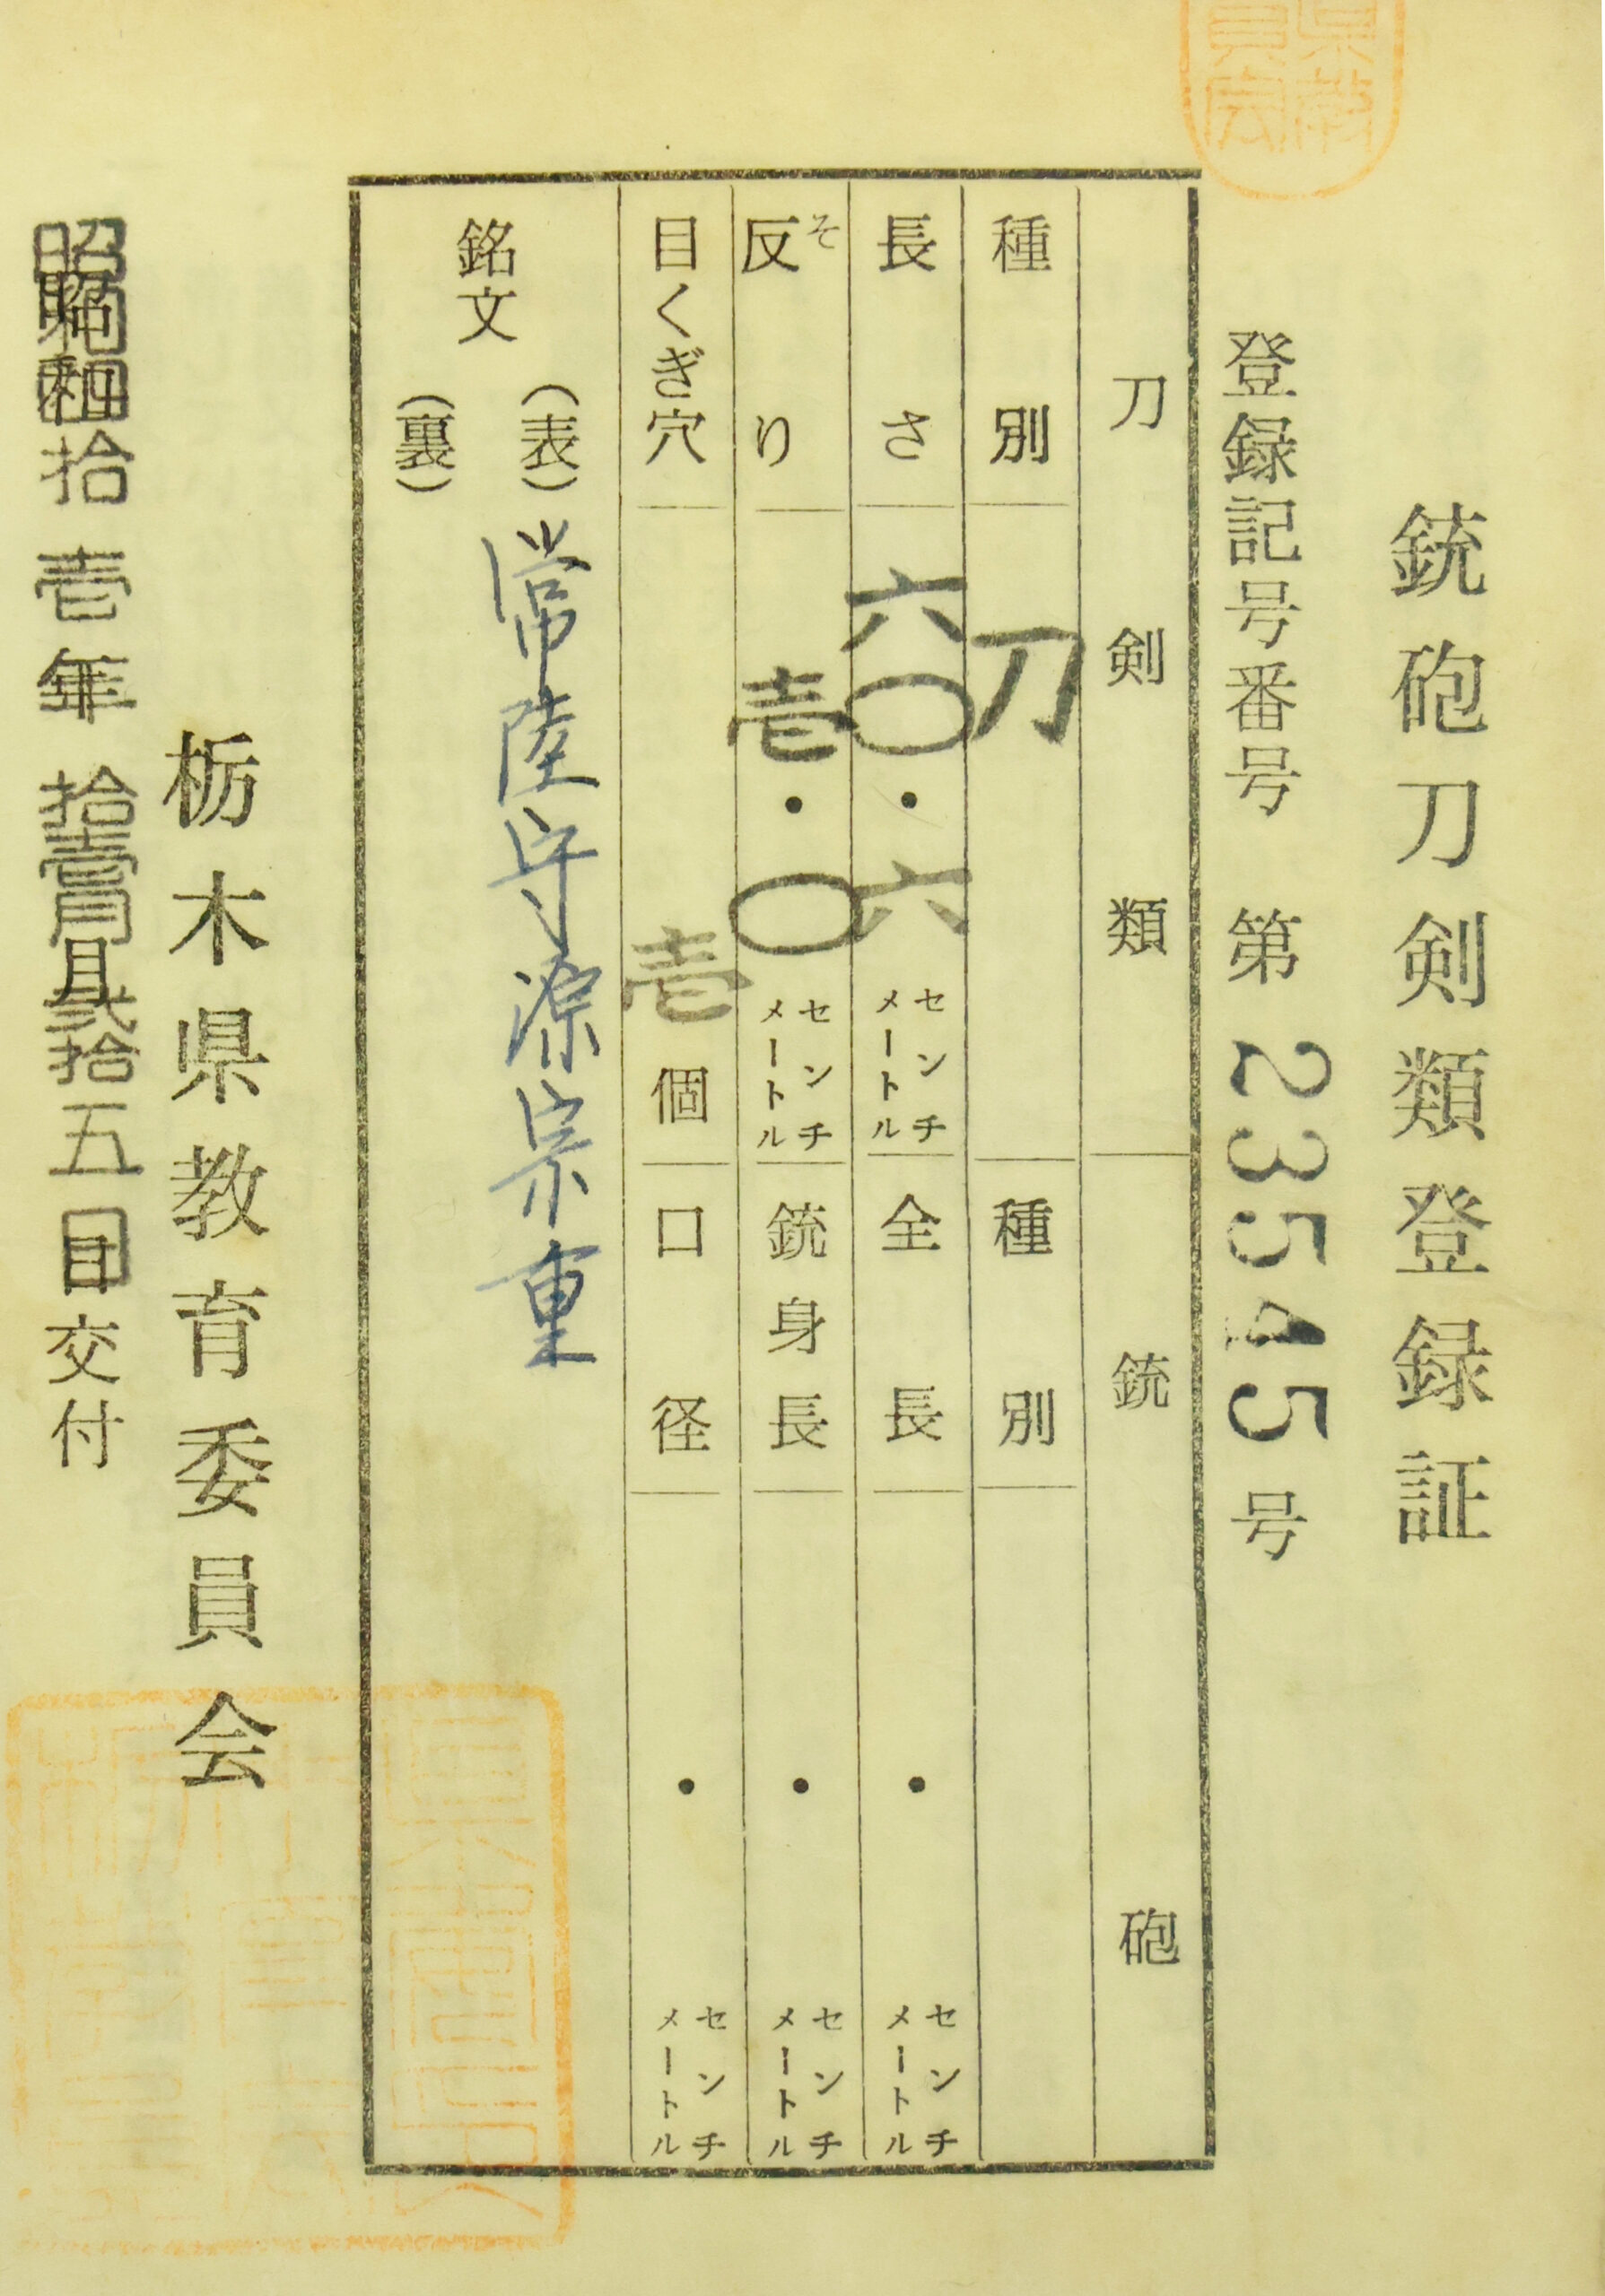 銃砲刀剣類登録証
登録記号番号 第 23545 号
刀剣類 銃砲
種別 刀 種別
長さ 六〇・六 センチメートル 全長 ・ センチメートル
反り そ 壱・〇 センチメートル 銃身長 ・ センチメートル
目くぎ穴 壱個 口径 ・ センチメートル
銘文 (表) 常陸守源宗重
(裏)
栃木県教育委員会
昭和四拾壱年拾壱月弐拾五日交付